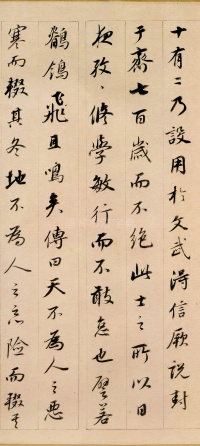 十有二乃設用於文武得信厥說封
于齊七百歲而不絕此士之所以日
夜孜〻修學敏行而不敢怠也譬若
鶺鴒飛且鳴矣傳曰天不為人之惡
寒而輟其冬地不為人之惡險而輟其